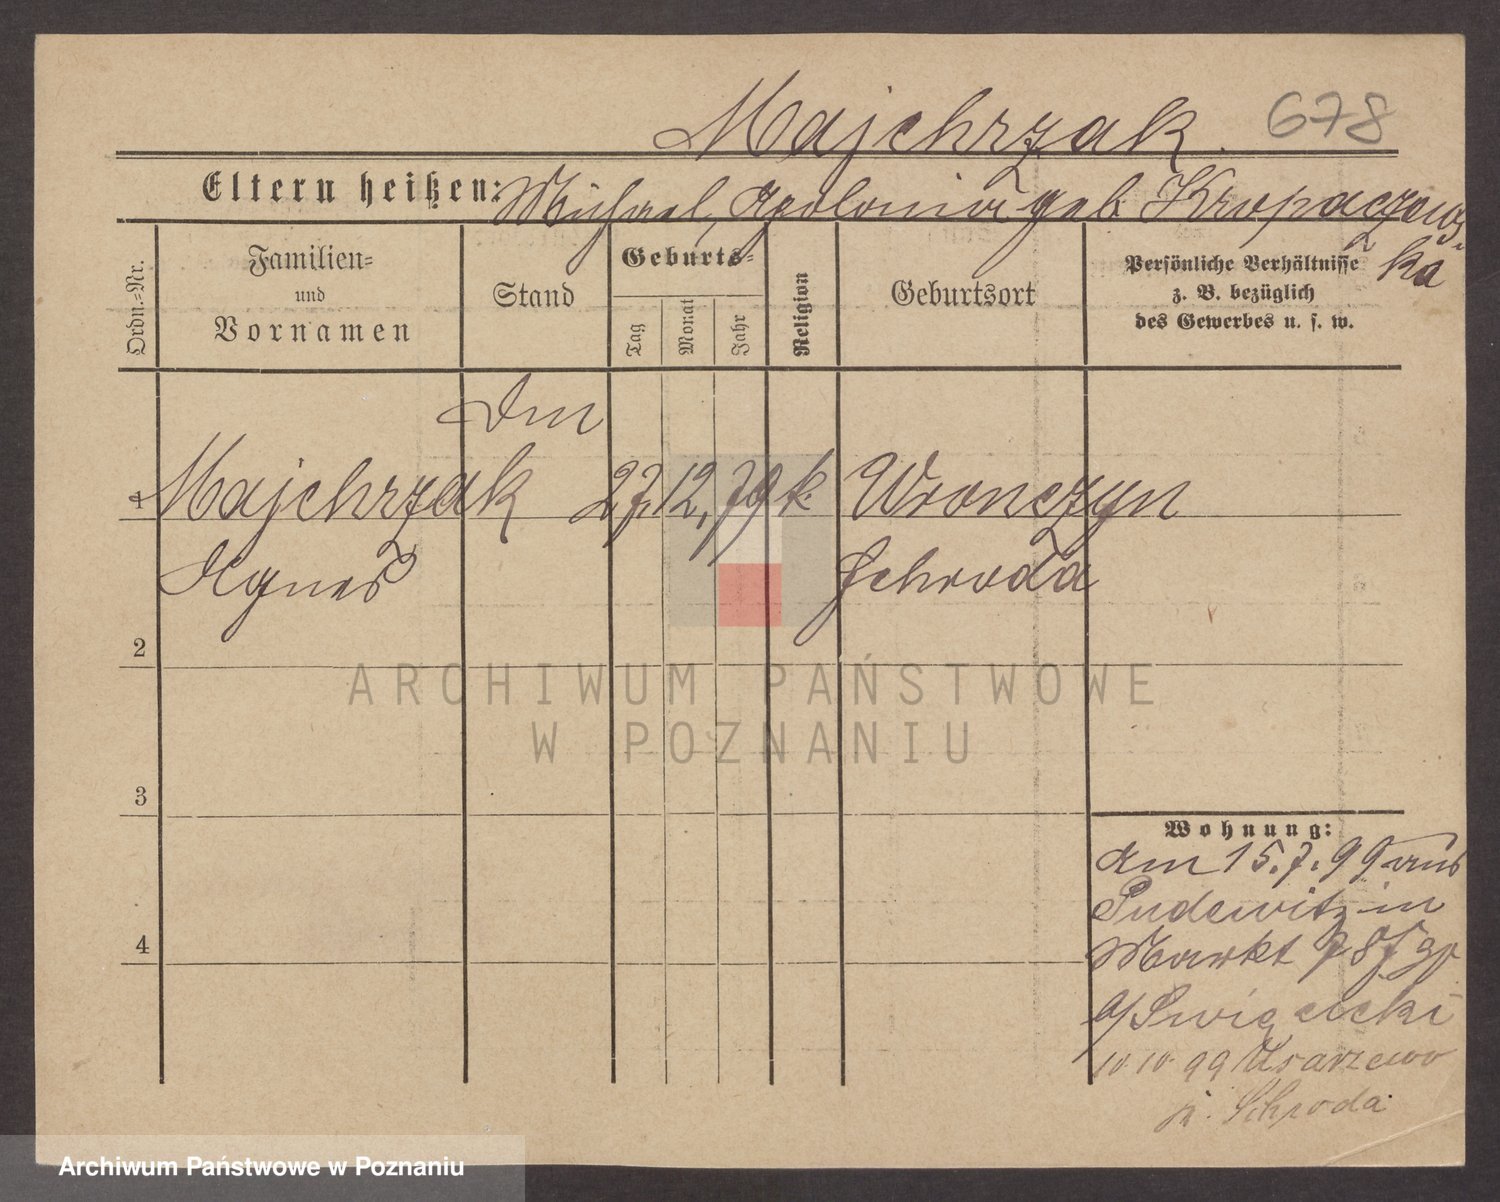 Majchrzak. 678
Eltern heißen: Michael, Apolonia geb Kropaczews-
ka
Ordn.=Nr.
Familien=
und
Vornamen
Stand
Geburts=
Tag
Monat
Jahr
Religion
Geburtsort
Persönliche Verhältnisse
z. B. bezüglich
des Gewerbes u. s. w.
Dm
1 Majchrzak 27. 12. 79 k. Wronczyn
Agnes Schroda
2
3
4
Wohnung:
am 15.7.99 aus
Pudewitz in
Markt
b/ Swięcicki
10 10 99 Usarzewo
Schroda
ARCHIWUM PAŃSTWOWE
W POZNANIU
Archiwum Państwowe w Poznaniu